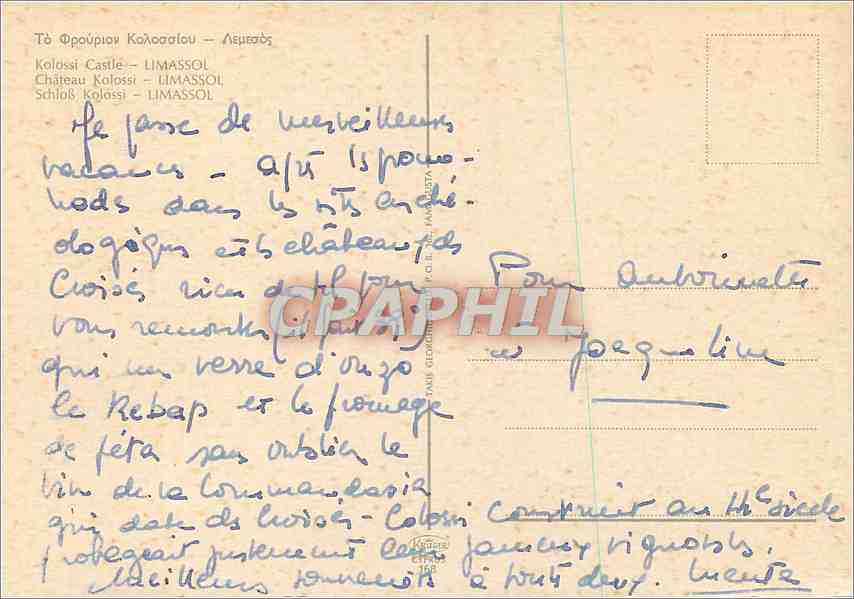 Τὸ Φρούριον Κολοσσίου – Λεμεσὸς
Kolossi Castle – LIMASSOL
Château Kolossi – LIMASSOL
Schloß Kolossi – LIMASSOL
Je passe de merveilleuses
vacances – après les prome-
nades dans les sites arché-
ologiques et les châteaux des
Croisés rien de tel pour
vous remonter
qui un verre d'ouzo
le Kebap et le fromage
de féta sans oublier le
vin de la Commandaria
qui date des Croisés – Colossi construit au XIIe siècle
protégeait justement leurs fameux vignobles.
Meilleurs souvenirs à toutes deux.
Pour Antoinette
et Jacqueline
TAKIS GEORGHI P.O.B. FAMAGUSTA
KRÜGER
CYPRUS
168
CPAPHIL